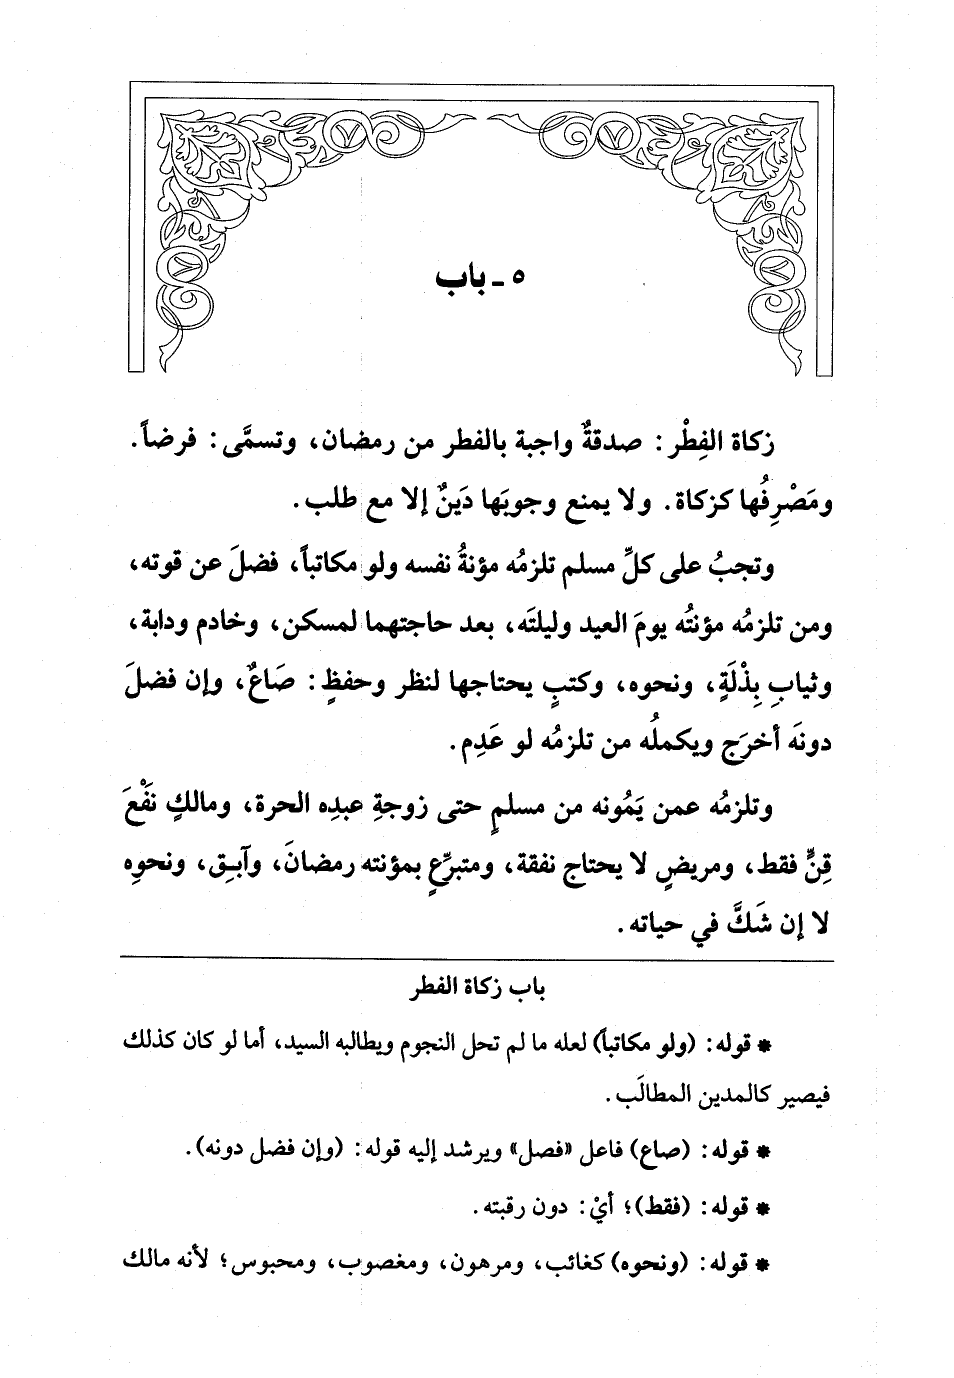 ٥ ـ باب
زكاة الفِطْر: صدقةٌ واجبة بالفطر من رمضان، وتسمَّى: فرضاً.
ومَصْرِفُها كزكاة. ولا يمنع وجوبَها دَينٌ إلا مع طلب.
وتجبُ على كلِّ مسلم تلزمُه مؤنةُ نفسه ولو مكاتباً، فضلَ عن قوته،
ومن تلزمُه مؤنتُه يومَ العيد وليلتَه، بعد حاجتهما لمسكن، وخادم ودابة،
وثيابِ بِذْلَةٍ، ونحوه، وكتبٍ يحتاجها لنظر وحفظٍ: صَاعٌ، وإن فضلَ
دونَه أخرَج ويكملُه من تلزمُه لو عَدِم.
وتلزمُه عمن يَمُونه من مسلمٍ حتى زوجةِ عبدِه الحرة، ومالكٍ نَفْعَ
قِنٍّ فقط، ومريضٍ لا يحتاج نفقة، ومتبرِّعٍ بمؤنته رمضانَ، وآبِق، ونحوِه
لا إن شَكَّ في حياته.
باب زكاة الفطر
* قوله: (ولو مكاتباً) لعله ما لم تحل النجوم ويطالبه السيد، أما لو كان كذلك
فيصير كالمدين المطالَب.
* قوله: (صاع) فاعل «فصل» ويرشد إليه قوله: (وإن فضل دونه).
* قوله: (فقط)؛ أيْ: دون رقبته.
* قوله: (ونحوه) كغائب، ومرهون، ومغصوب، ومحبوس؛ لأنه مالك